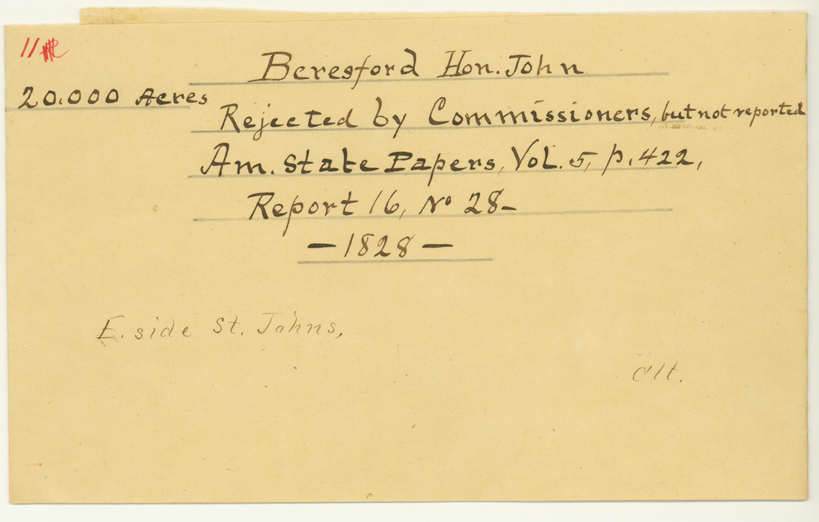 11
Beresford Hon. John
20.000 Acres
Rejected by Commissioners, but not reported
Am. State Papers, Vol. 5, p. 422,
Report 16, No 28-
— 1828 —
E. side St. Johns,